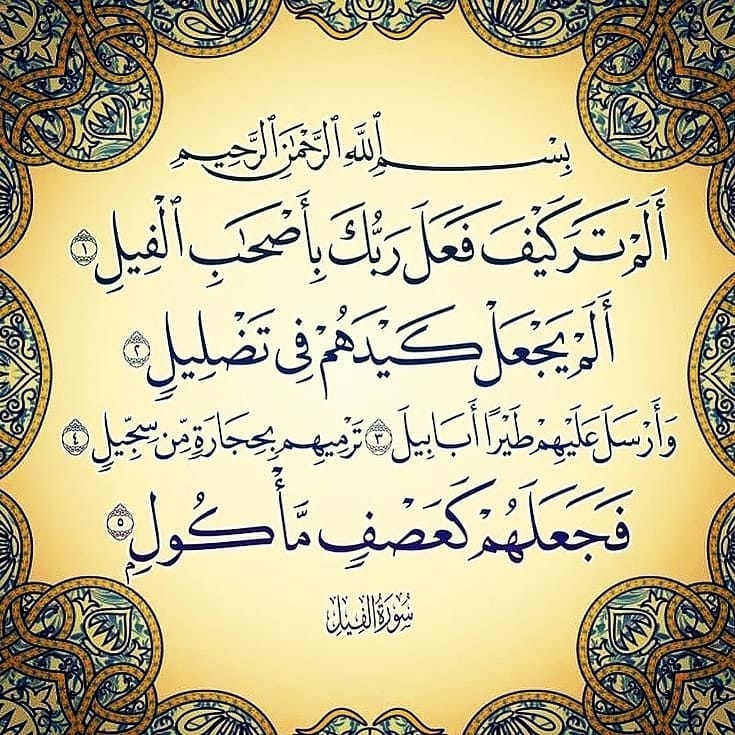 بِسْمِ ٱللَّهِ ٱلرَّحْمَٰنِ ٱلرَّحِيمِ
أَلَمْ تَرَ كَيْفَ فَعَلَ رَبُّكَ بِأَصْحَٰبِ ٱلْفِيلِ ١
أَلَمْ يَجْعَلْ كَيْدَهُمْ فِى تَضْلِيلٍ ٢
وَأَرْسَلَ عَلَيْهِمْ طَيْرًا أَبَابِيلَ ٣ تَرْمِيهِم بِحِجَارَةٍ مِّن سِجِّيلٍ ٤
فَجَعَلَهُمْ كَعَصْفٍ مَّأْكُولٍۭ ٥
سُورَةُ الفِيلِ